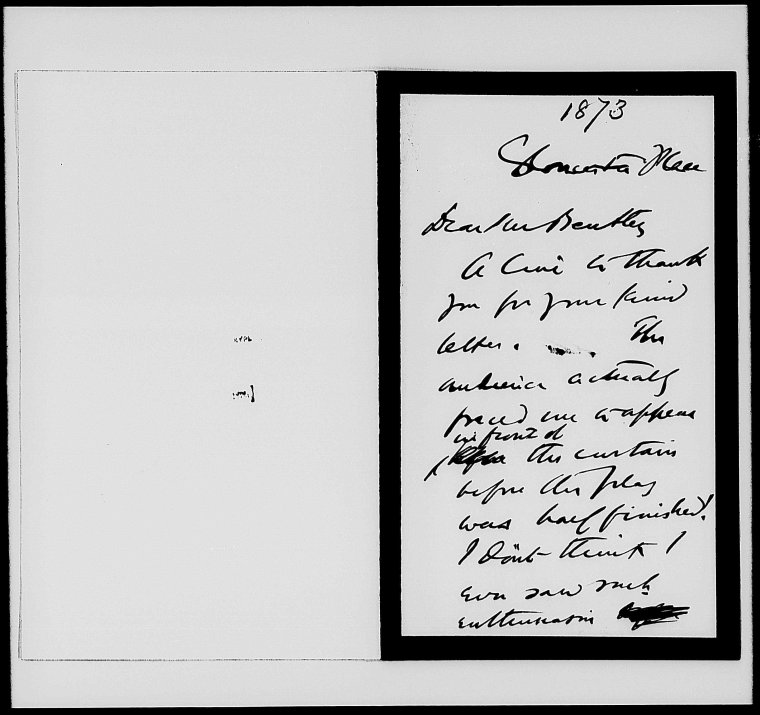 1873
Gloucester Place
Dear Mr Bentley
A line to thank
you for your kind
letter. The
audience actually
forced me to appear
in front of
the curtain
before the play
was half finished!
I don't think I
ever saw such
enthusiasm